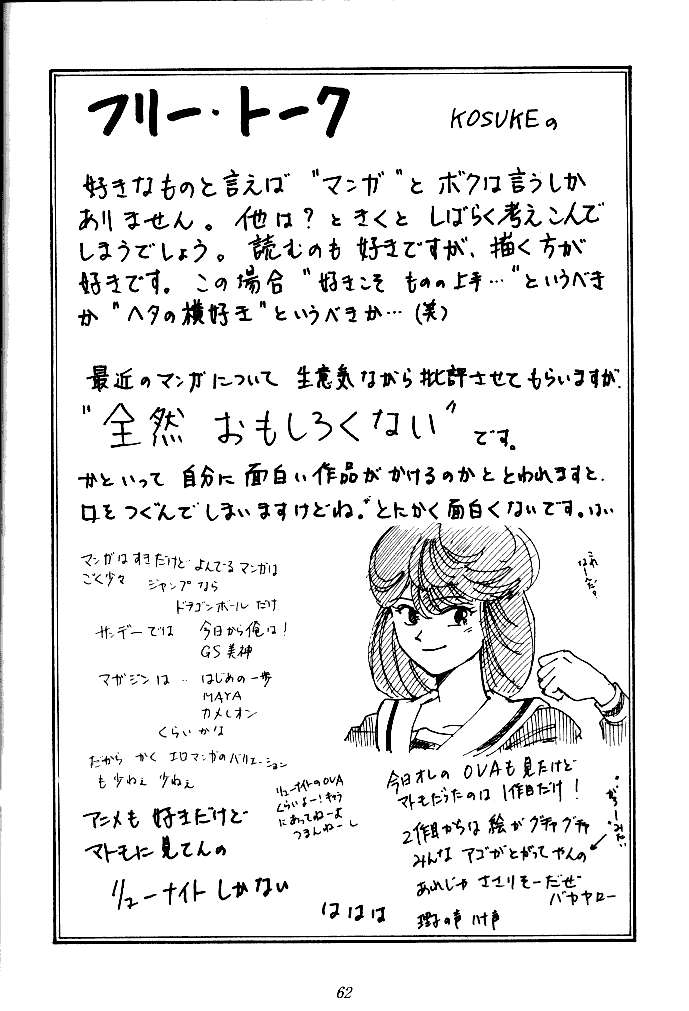 フリー・トーク
KOSUKEの
好きなものと言えば "マンガ"と ボクは言うしか
ありません。他は？ときくと しばらく考えこんで
しまうでしょう。読むのも好きですが、描く方が
好きです。この場合 "好きこそ ものの上手…"というべき
か "ヘタの横好き"というべきか…(笑)
最近のマンガについて 生意気ながら批評させてもらいますが、
"全然 おもしろくない" です。
かといって 自分に面白い作品がかけるのかととわれますと、
口をつぐんでしまいますけどね。とにかく面白くないです。はい
マンガはすきだけど よんでるマンガは
ごく少々 ジャンプなら
ドラゴンボールだけ
サンデーでは 今日から俺は！
GS美神
マガジンは … はじめの一歩
MAYA
カメレオン
くらいかな
だから かく エロマンガのバリエーション
も 少ねぇ 少ねぇ
アニメも 好きだけど
マトモに 見てんの
リューナイト しかない
リューナイトのOVA
くらいよー！キャラ
にあってねーよ
つまんねーし
ははは
今日オレの OVAも見たけど
マトモだったのは 1作目だけ！
2作目からは 絵がグチャグチャ
みんな アゴがとがってやんの
あれじゃ ささりそーだぜ
バカヤロー
理子の声